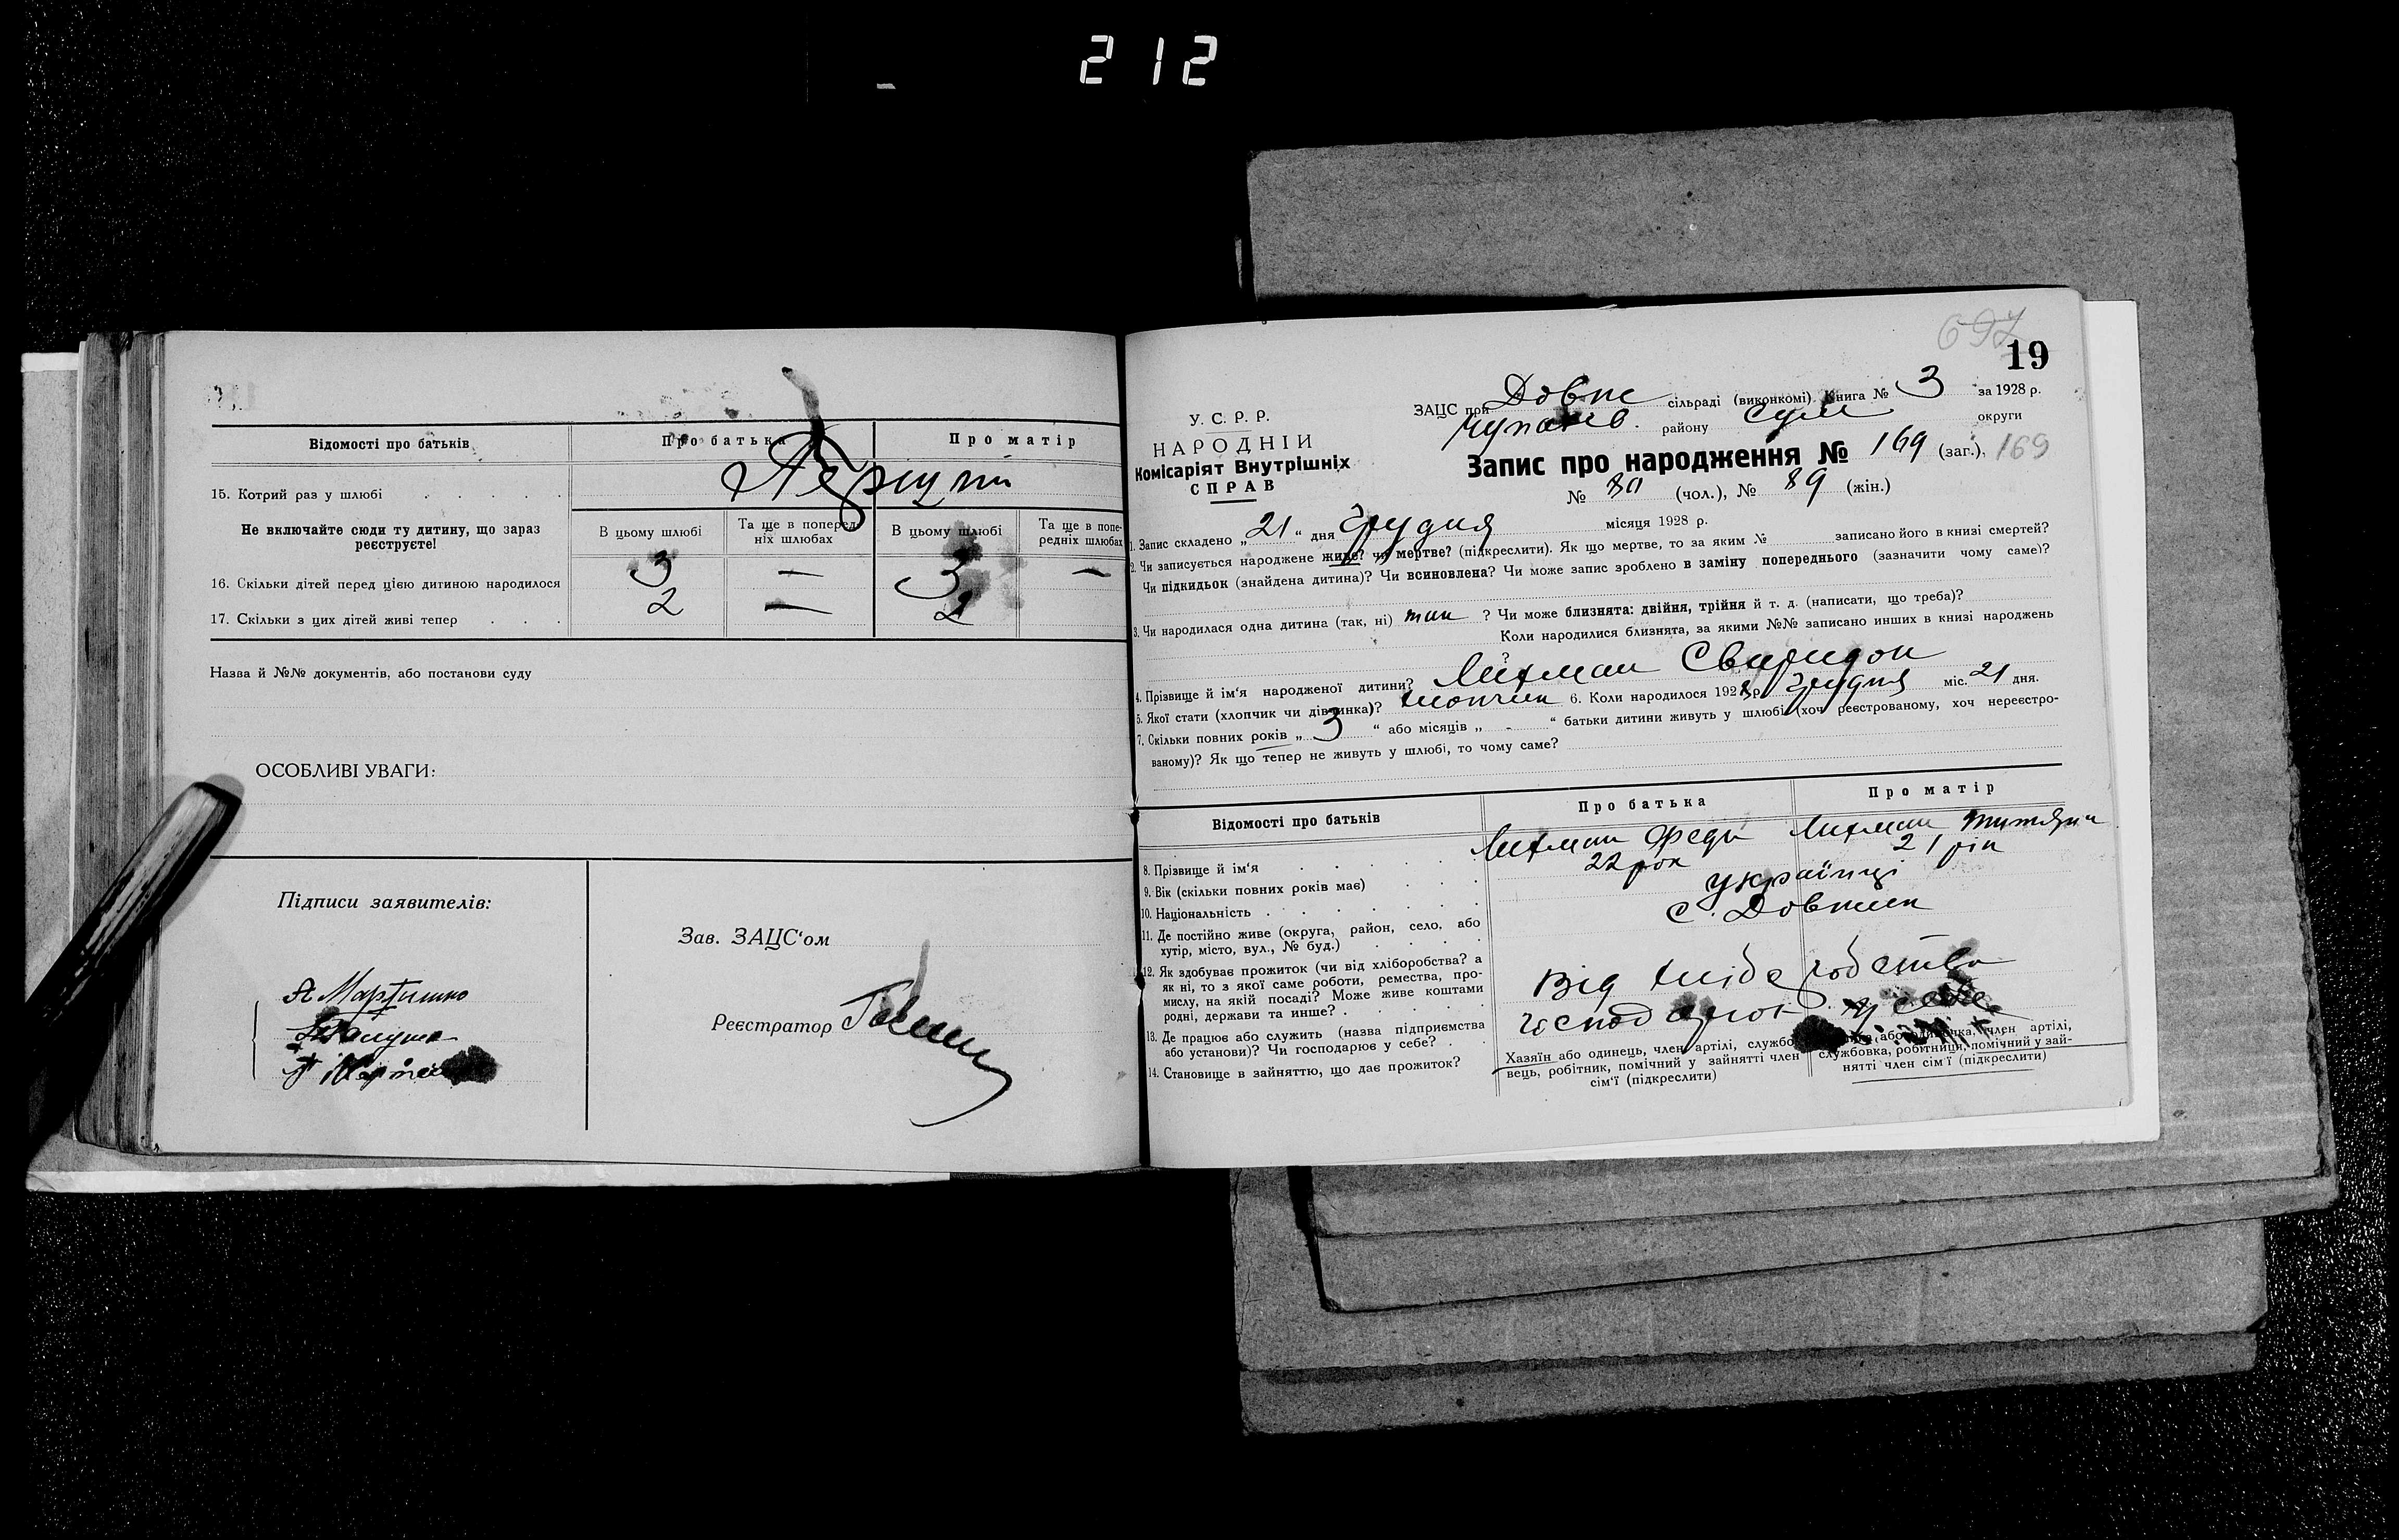 212
Відомості про батьків
Про батька
Про матір
15. Котрий раз у шлюбі
Перший
Не включайте сюди ту дитину, що зараз реєструєте!
В цьому шлюбі
Та ще в поперед-
ніх шлюбах
В цьому шлюбі
Та ще в попе-
редніх шлюбах
16. Скільки дітей перед цією дитиною народилося 3 — 3 —
17. Скільки з цих дітей живі тепер 2 — 2
Назва й №№ документів, або постанови суду
ОСОБЛИВІ УВАГИ:
Підписи заявителів:
Зав. ЗАЦС‘ом
Реєстратор
697
19
У. С. Р. Р.
НАРОДНІЙ
Комісаріят Внутрішніх
СПРАВ
ЗАЦС при Довж сільраді (виконкомі) Книга № 3 за 1928 р.
району Сум округи
Запис про народження № 169 (заг.), 169
№ 80 (чол.), № 89 (жін.)
1. Запис складено „21“ дня Грудня місяця 1928 р.
2. Чи записується народжене живе? чи мертве? (підкреслити). Як що мертве, то за яким № записано його в книзі смертей?
Чи підкидьок (знайдена дитина)? Чи всиновлена? Чи може запис зроблено в заміну попереднього (зазначити чому саме)?
3. Чи народилася одна дитина (так, ні) так ? Чи може близнята: двійня, трійня й т. д. (написати, що треба)?
Коли народилися близнята, за якими №№ записано инших в книзі народжень
?
4. Прізвище й ім‘я народженої дитини? Лихман Свиридон
5. Якої стати (хлопчик чи дівчинка)? хлопчик 6. Коли народилося 1928 р. Грудня міс. 21 дня.
7. Скільки повних років „ 3 “ або місяців „ - “ батьки дитини живуть у шлюбі (хоч реєстрованому, хоч нереєстро-
ваному)? Як що тепер не живуть у шлюбі, то чому саме?
Відомості про батьків
Про батька
Про матір
8. Прізвище й ім‘я Лихман Федір Лихман
9. Вік (скільки повних років має) 22 рок 21 рік
10. Національність українці
11. Де постійно живе (округа, район, село, або
хутір, місто, вул., № буд.) с. Довжик
12. Як здобуває прожиток (чи від хліборобства? а
як ні, то з якої саме роботи, ремества, про-
мислу, на якій посаді? Може живе коштами
родні, держави та инше? Від хліборобства
13. Де працює або служить (назва підприємства
або установи)? Чи господарює у себе? у себе
14. Становище в зайняттю, що дає прожиток?
Хазяїн або одинець, член артілі, службо-
вець, робітник, помічний у зайнятті член
сім‘ї (підкреслити)
або одиначка, член артілі,
службовка, робітниця, помічний у зай-
нятті член сім‘ї (підкреслити)